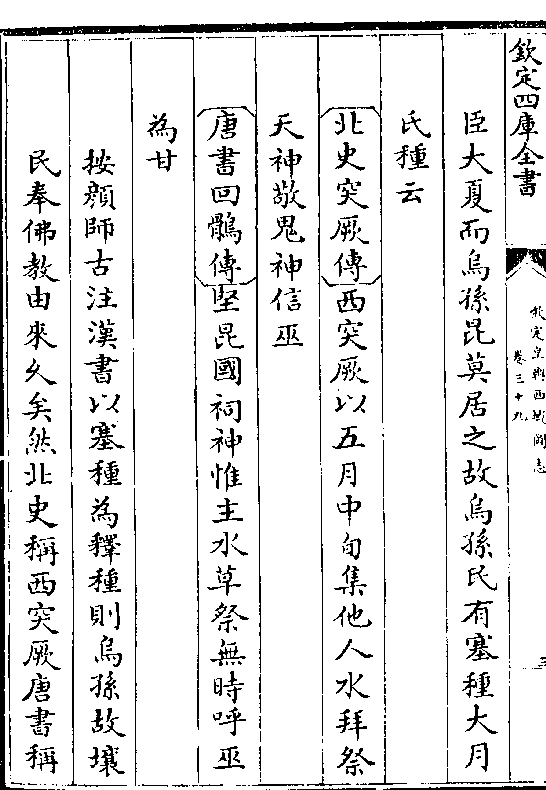 欽定四庫全書
欽定皇輿西域圖志
卷三十九
三
臣大夏而烏孫昆莫居之故烏孫氏有塞種大月
氏種云
北史突厥傳西突厥以五月中旬集他人水拜祭
天神敬鬼神信巫
唐書回鶻傳堅昆國祠神惟主水草祭無時呼巫
為甘
按顏師古注漢書以塞種為釋種則烏孫故壤
民奉佛教由來久矣然北史稱西突厥唐書稱